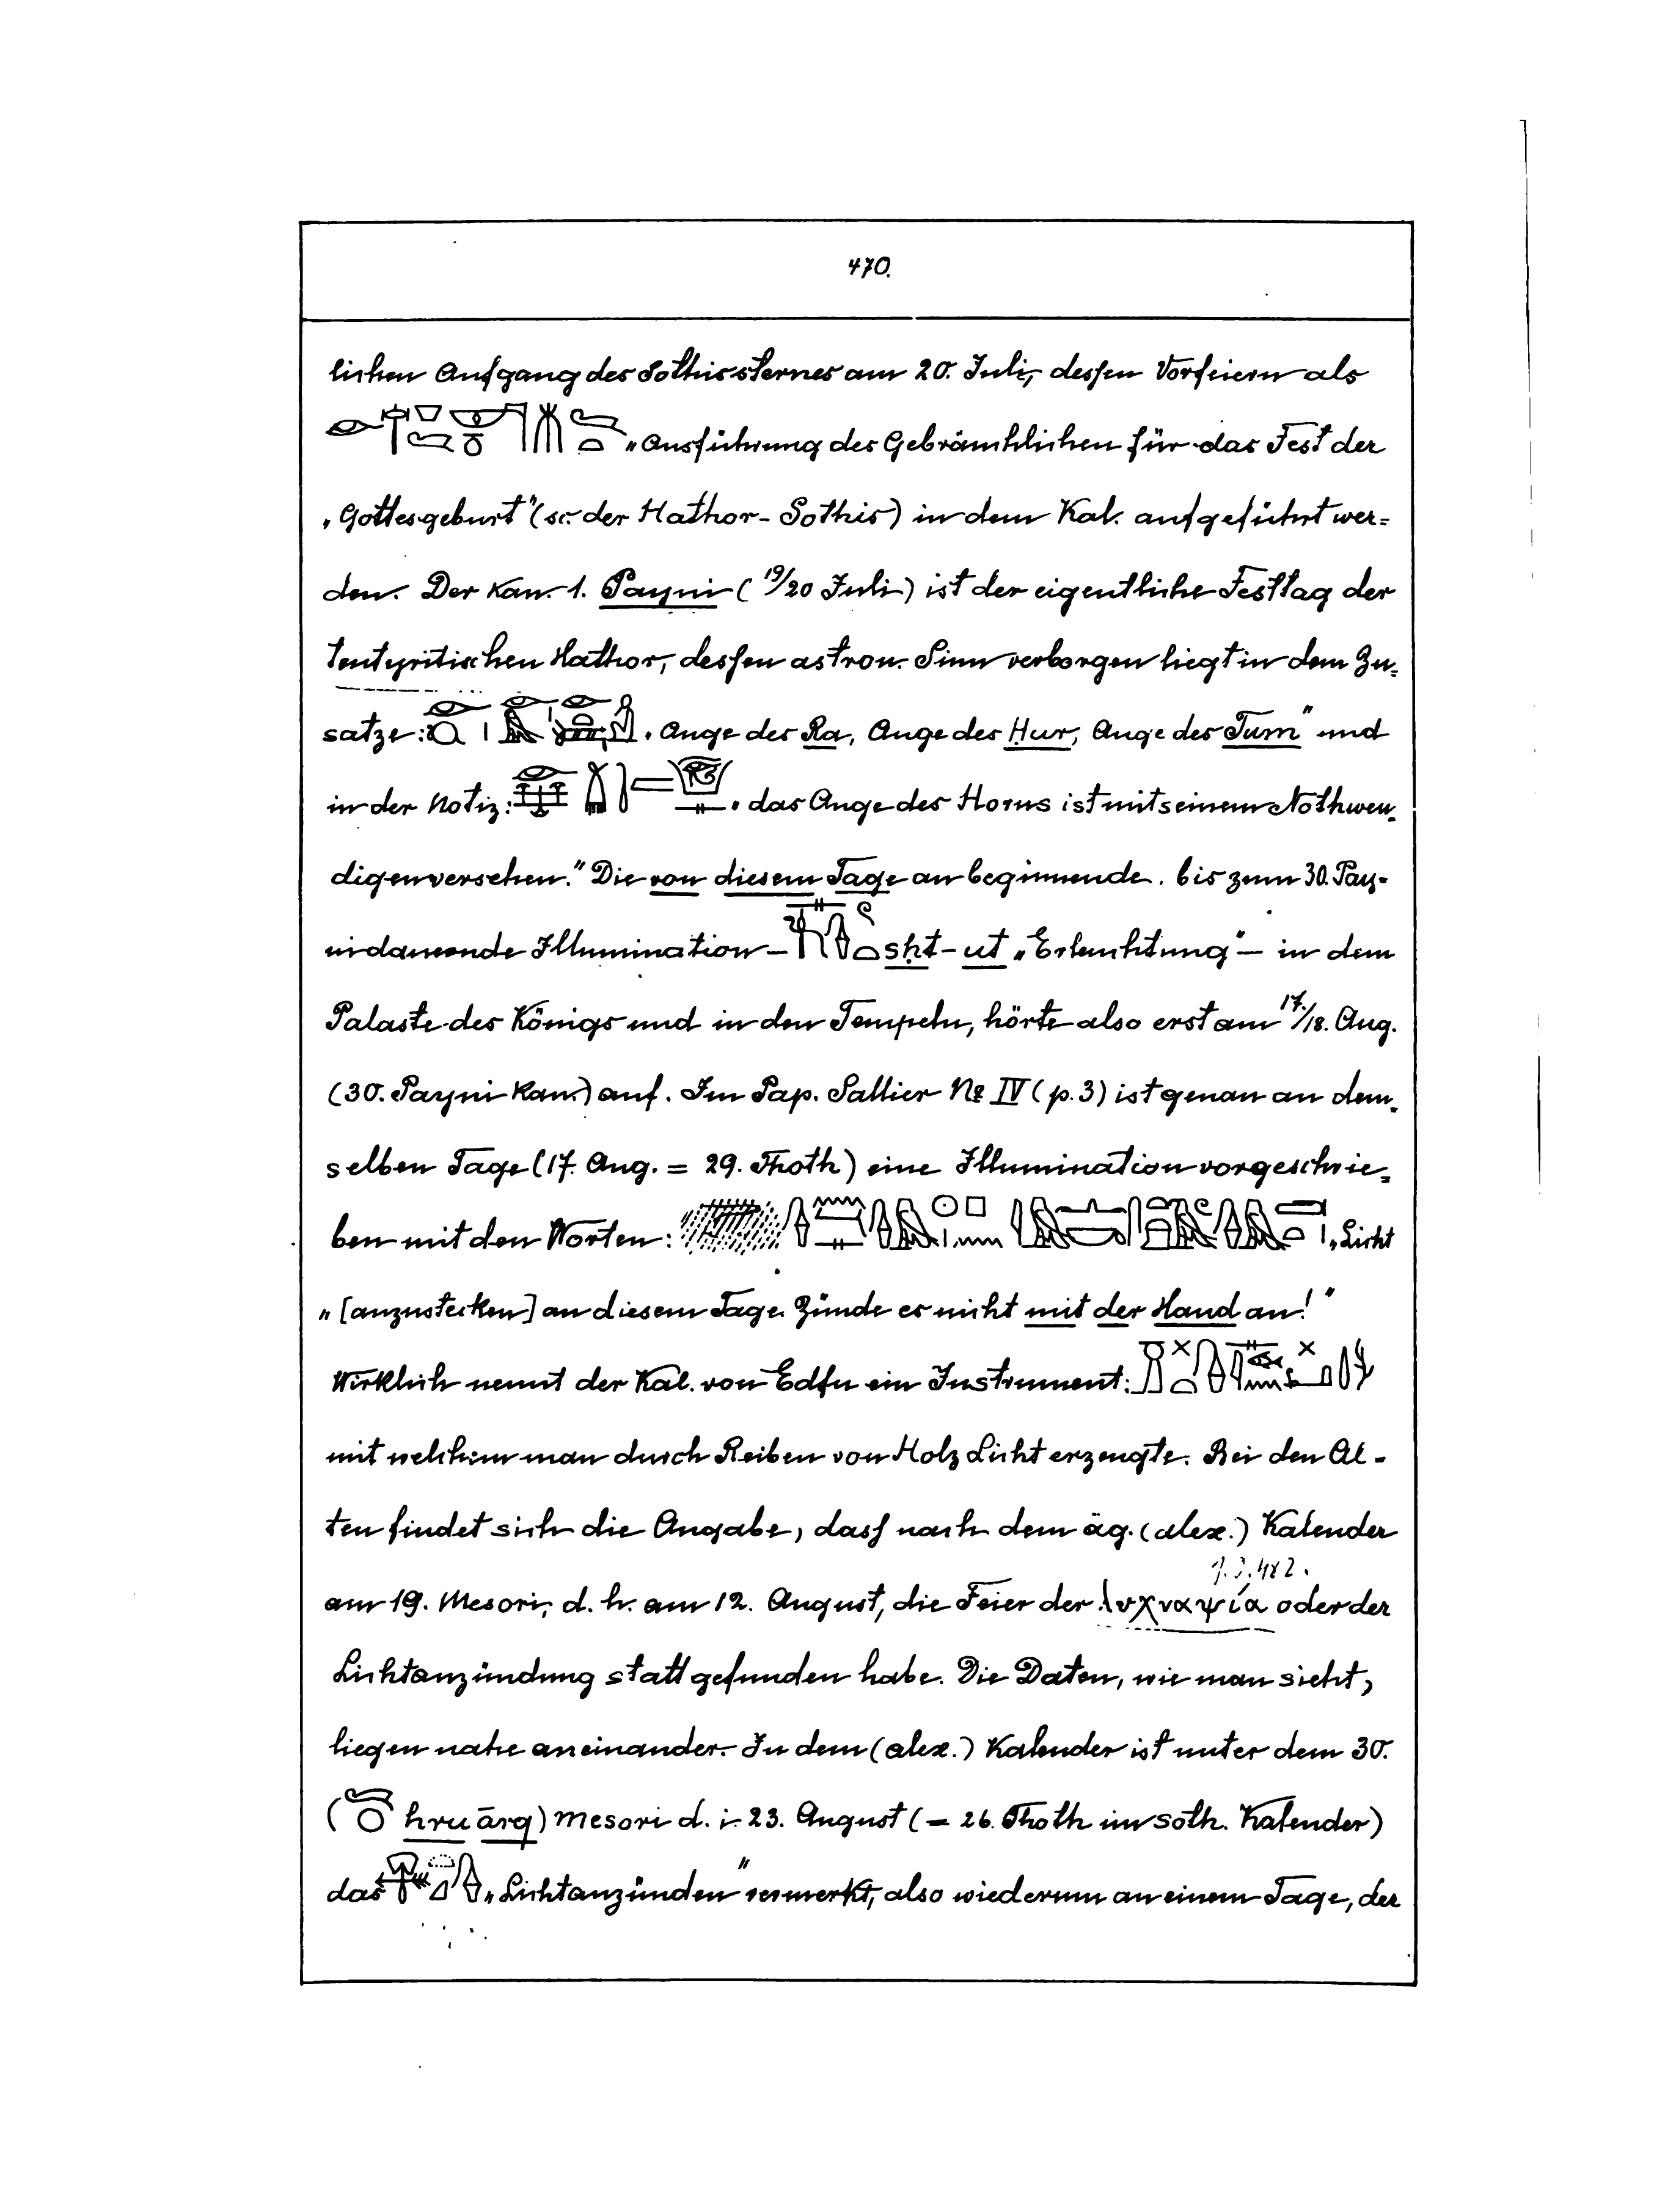 470.
lichen Aufgang des Sothissternes am 20. Juli, dessen Vorfeiern als
„Ausführung des Gebräuchlichen für das Fest der
„Gottesgeburt" (sc. der Hathor-Sothis) in dem Kal. aufgeführt wer=
den. Der kan. 1. Payni (19/20 Juli) ist der eigentliche Festtag der
tentyritischen Hathor, dessen astron. Sinn verborgen liegt in dem Zu=
satze: „Auge des Ra, Auge des Hur, Auge des Tum" und
in der Notiz: „das Auge des Horus ist mit seinem Nothwen=
digen versehen." Die von diesem Tage an beginnende, bis zum 30. Pay-
ni dauernde Illumination – sht-ut „Erleuchtung" – in dem
Palaste des Königs und in den Tempeln, hörte also erst am 17./18. Aug.
(30. Payni kan.) auf. Im Pap. Sallier № IV (p. 3) ist genau an dem=
selben Tage (17. Aug. = 29. Thoth) eine Illumination vorgeschrie=
ben mit den Worten: „Licht
„[anzustecken] an diesem Tage. Zünde es nicht mit der Hand an!"
Wirklich nennt der Kal. von Edfu ein Instrument:
mit welchem man durch Reiben von Holz Licht erzeugte. Bei den Al-
ten findet sich die Angabe, dass nach dem äg. (alex.) Kalender
am 19. Mesori, d. h. am 12. August, die Feier der λυχναψία oder der
Lichtanzündung statt gefunden habe. Die Daten, wie man sieht,
liegen nahe aneinander. In dem (alex.) Kalender ist unter dem 30.
( hru ārq) Mesori d. i. 23. August (= 26. Thoth im soth. Kalender)
das „Lichtanzünden" vermerkt, also wiederum an einem Tage, der